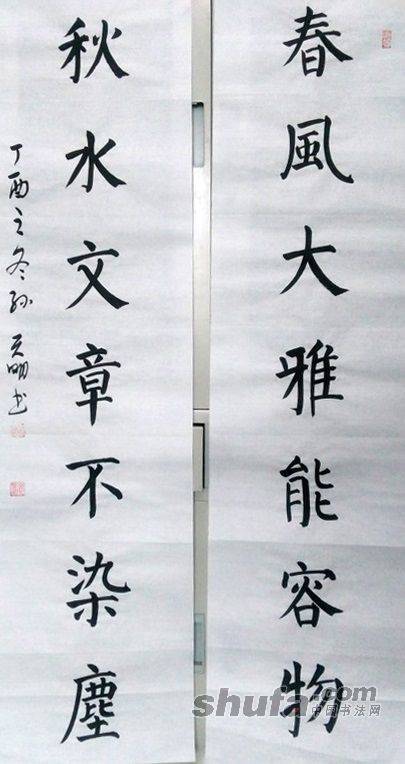 春風大雅能容物
秋水文章不染塵
丁酉之冬孙天明书
shufa.com
中国书法网